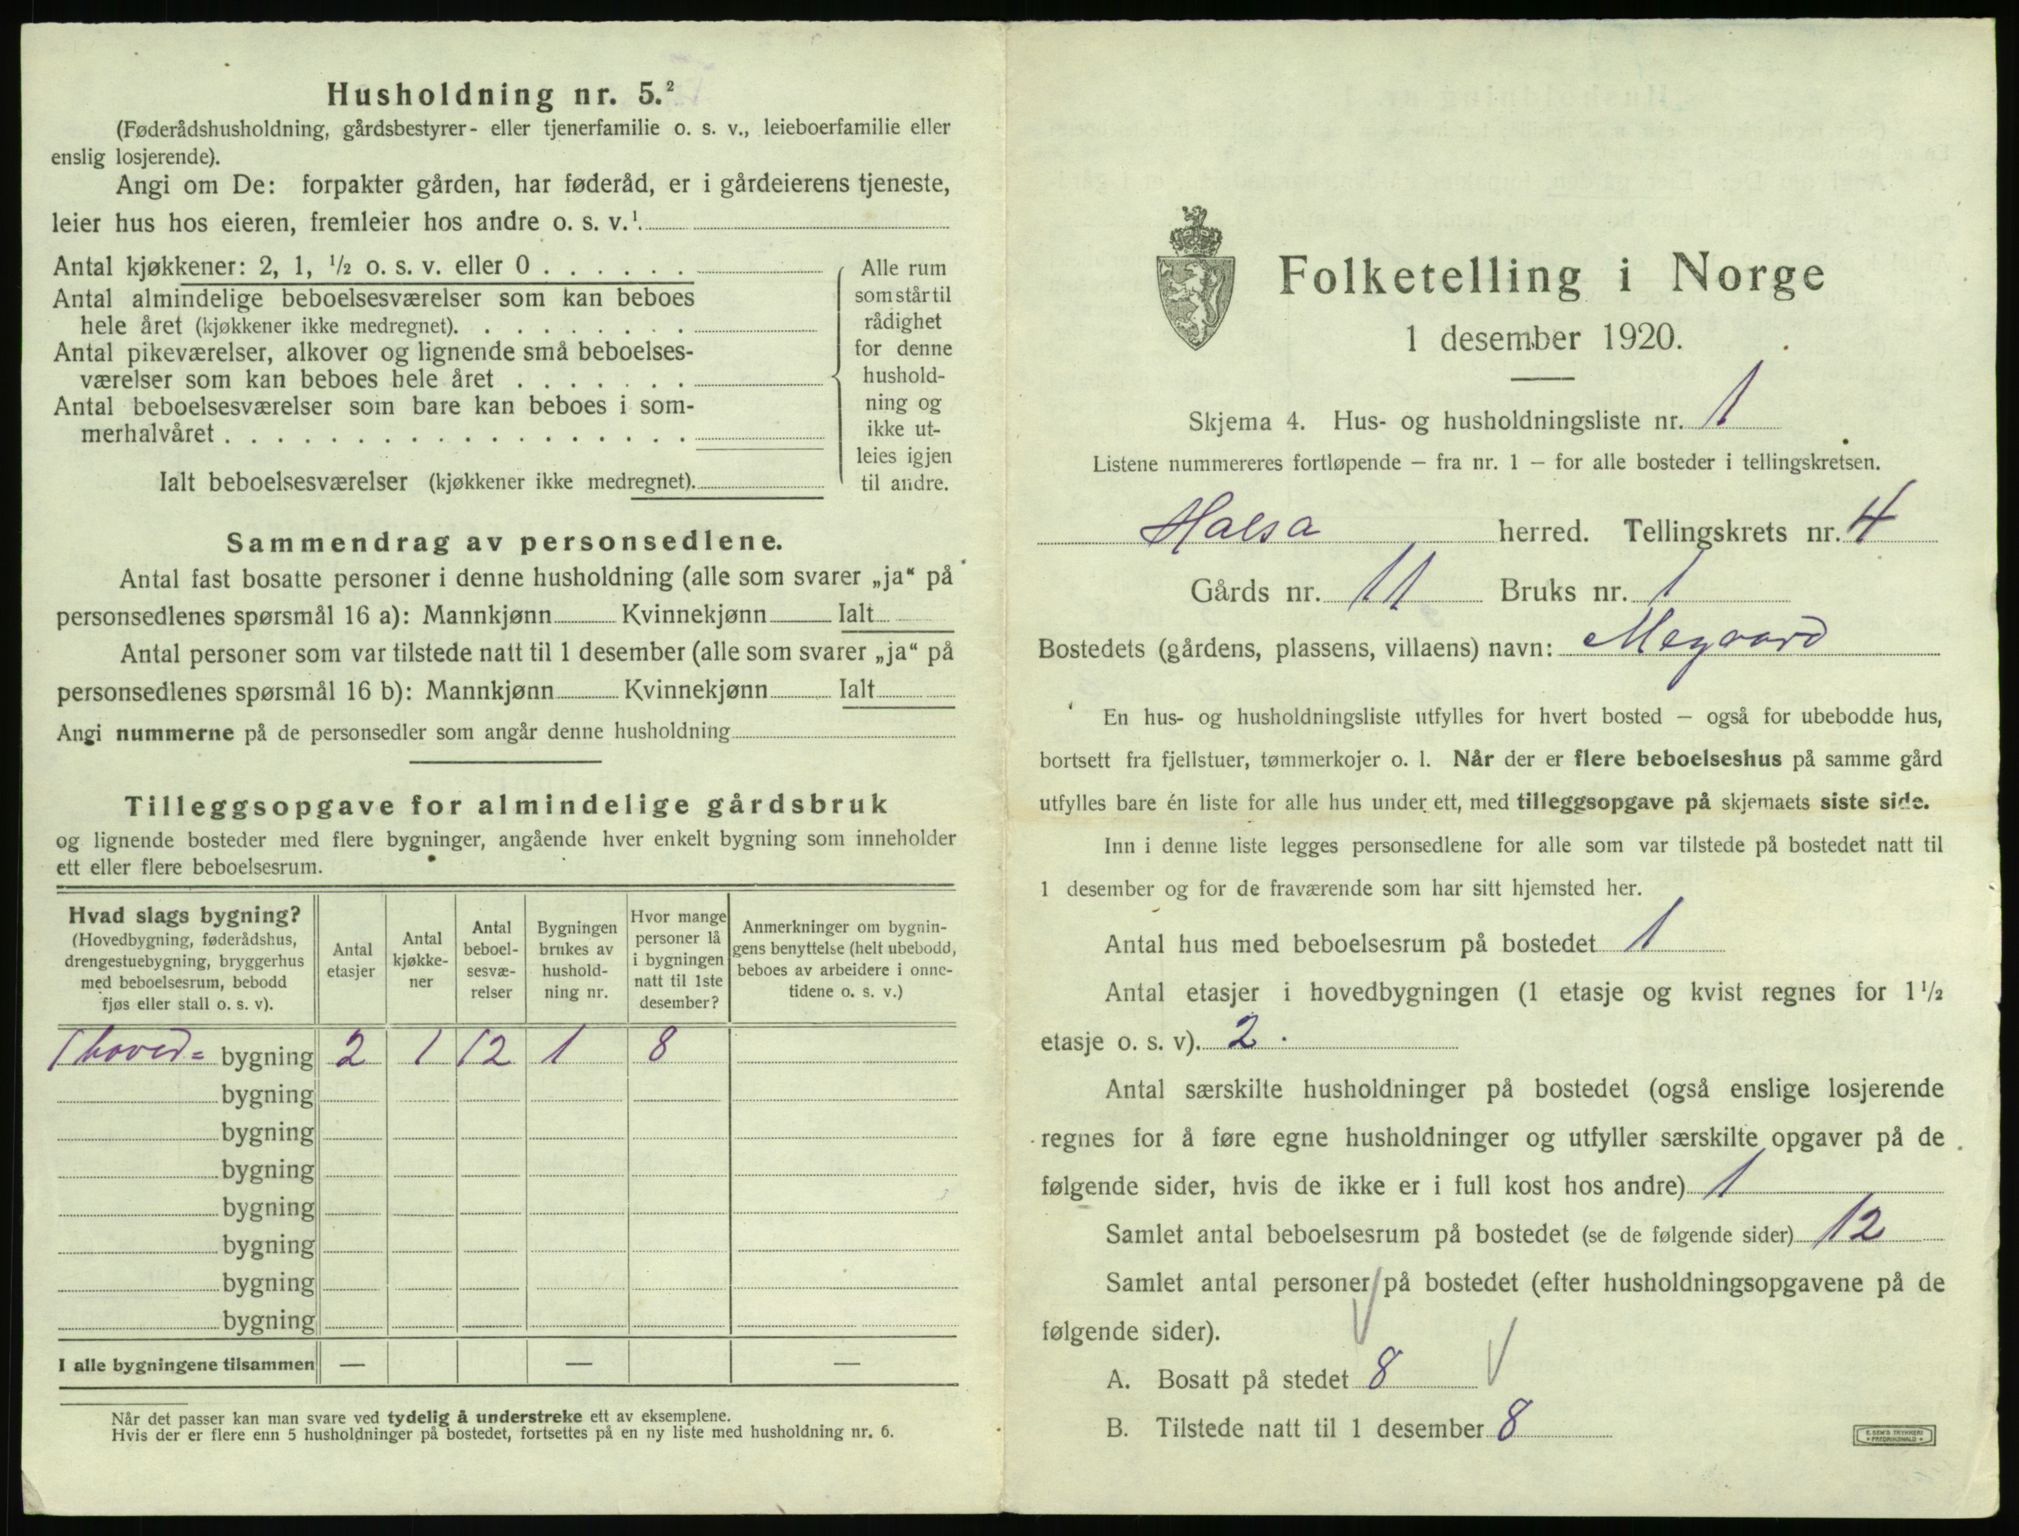 Husholdning nr. 5.²
(Føderådshusholdning, gårdsbestyrer- eller tjenerfamilie o. s. v., leieboerfamilie eller
enslig losjerende).
Angi om De: forpakter gården, har føderåd, er i gårdeierens tjeneste,
leier hus hos eieren, fremleier hos andre o. s. v.¹.
Antal kjøkkener: 2, 1, ½ o. s. v. eller 0
Antal almindelige beboelsesværelser som kan beboes
hele året (kjøkkener ikke medregnet).
Antal pikeværelser, alkover og lignende små beboelses-
værelser som kan beboes hele året
Antal beboelsesværelser som bare kan beboes i som-
merhalvåret
Ialt beboelsesværelser (kjøkkener ikke medregnet).
Alle rum
som står til
rådighet
for denne
hushold-
ning og
ikke ut-
leies igjen
til andre.
Sammendrag av personsedlene.
Antal fast bosatte personer i denne husholdning (alle som svarer „ja“ på
personsedlenes spørsmål 16 a): Mannkjønn Kvinnekjønn Ialt
Antal personer som var tilstede natt til 1 desember (alle som svarer „ja“ på
personsedlenes spørsmål 16 b): Mannkjønn Kvinnekjønn Ialt
Angi nummerne på de personsedler som angår denne husholdning
Tilleggsopgave for almindelige gårdsbruk
og lignende bosteder med flere bygninger, angående hver enkelt bygning som inneholder
ett eller flere beboelsesrum.
Hvad slags bygning?
(Hovedbygning, føderådshus,
drengestuebygning, bryggerhus
med beboelsesrum, bebodd
fjøs eller stall o. s. v).
Antal
etasjer
Antal
kjøkke-
ner
Antal
beboel-
sesvæ-
relser
Bygningen
brukes av
hushold-
ning nr.
Hvor mange
personer lå
i bygningen
natt til 1ste
desember?
Anmerkninger om bygnin-
gens benyttelse (helt ubebodd,
beboes av arbeidere i onne-
tidene o. s. v.)
1 hoved= bygning 2 1 12 1 8
bygning
bygning
bygning
bygning
bygning
bygning
bygning
I alle bygningene tilsammen — — —
Når det passer kan man svare ved tydelig å understreke ett av eksemplene.
Hvis der er flere enn 5 husholdninger på bostedet, fortsettes på en ny liste med husholdning nr. 6.
Folketelling i Norge
1 desember 1920.
Skjema 4. Hus- og husholdningsliste nr. 1
Listene nummereres fortløpende — fra nr. 1 — for alle bosteder i tellingskretsen.
Halsa herred. Tellingskrets nr. 4
Gårds nr. 11 Bruks nr. 1
Bostedets (gårdens, plassens, villaens) navn: Megaard
En hus- og husholdningsliste utfylles for hvert bosted — også for ubebodde hus,
bortsett fra fjellstuer, tømmerkojer o. l. Når der er flere beboelseshus på samme gård
utfylles bare én liste for alle hus under ett, med tilleggsopgave på skjemaets siste side.
Inn i denne liste legges personsedlene for alle som var tilstede på bostedet natt til
1 desember og for de fraværende som har sitt hjemsted her.
Antal hus med beboelsesrum på bostedet 1
Antal etasjer i hovedbygningen (1 etasje og kvist regnes for 1½
etasje o. s. v). 2.
Antal særskilte husholdninger på bostedet (også enslige losjerende
regnes for å føre egne husholdninger og utfyller særskilte opgaver på de
følgende sider, hvis de ikke er i full kost hos andre) 1
Samlet antal beboelsesrum på bostedet (se de følgende sider) 12
Samlet antal personer på bostedet (efter husholdningsopgavene på de
følgende sider).
A. Bosatt på stedet 8
B. Tilstede natt til 1 desember 8
E. SEM'S TRYKKERI
FREDRIKSHALD